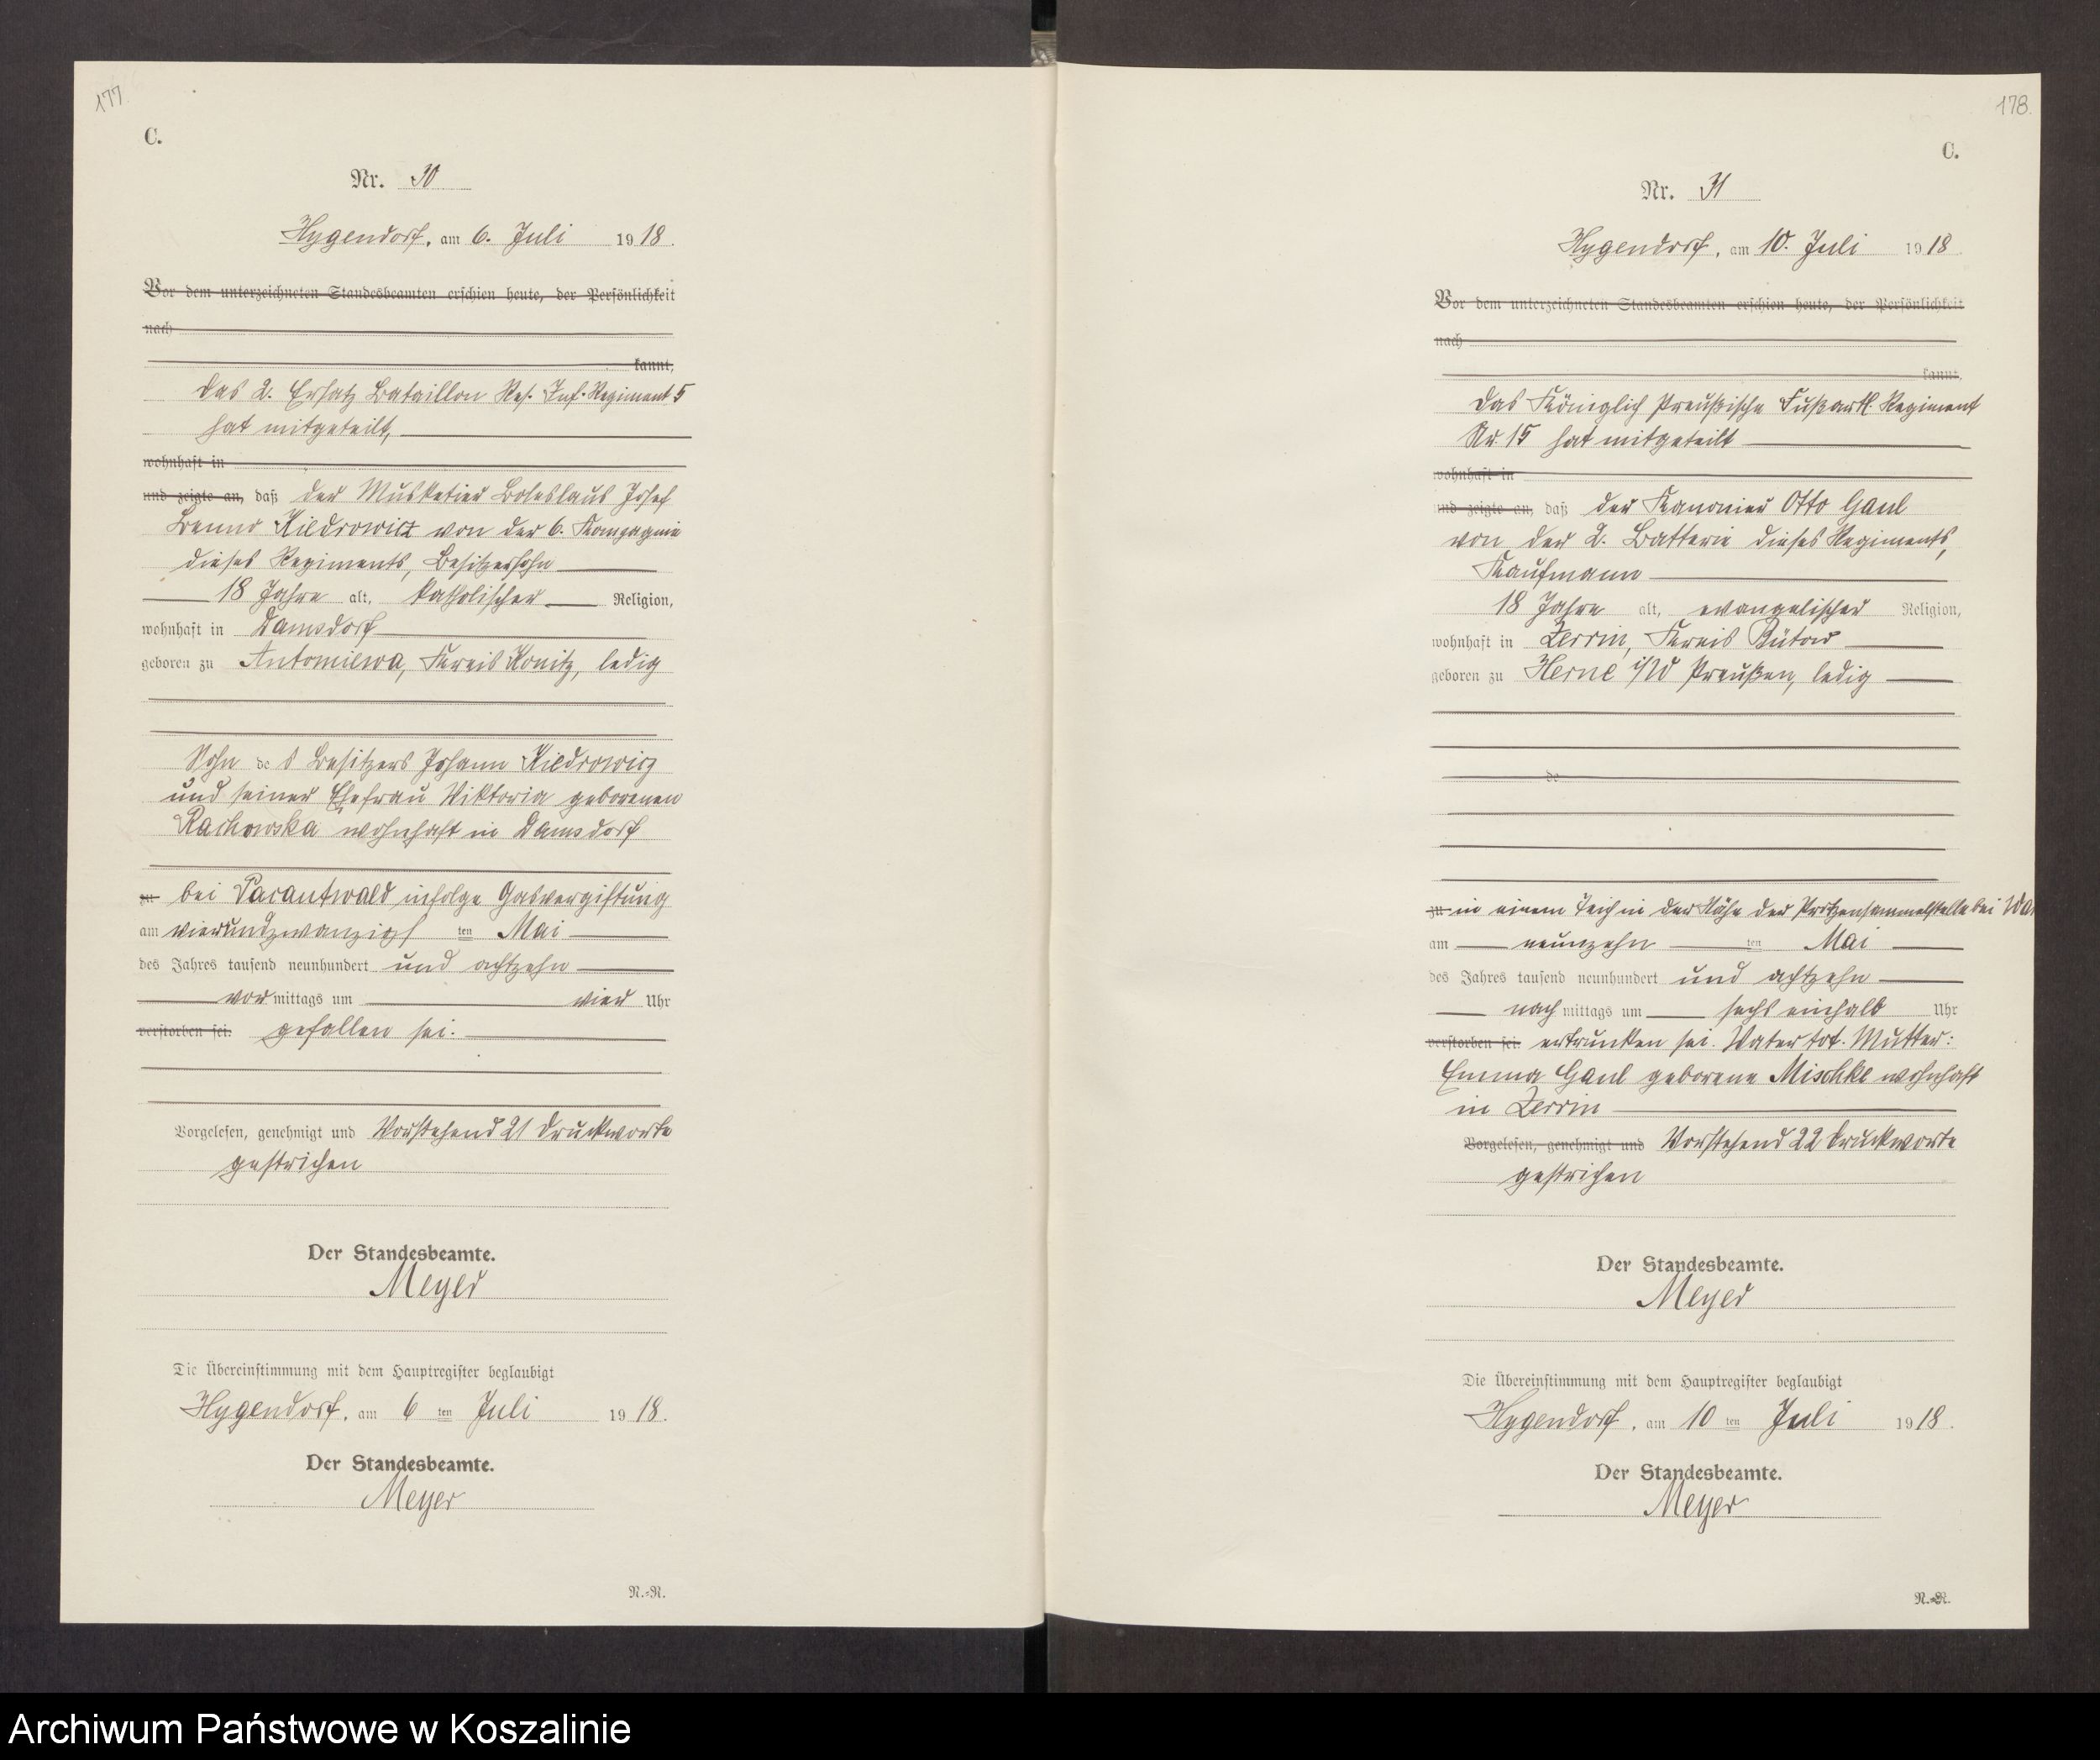 177
C.
Nr. 30
Hygendorf, am 6. Juli 1918.
Vor dem unterzeichneten Standesbeamten erschien heute, der Persönlichkeit
nach
kannt,
das 2. Ersatz Bataillon Res. Inf. Regiment 5
hat mitgeteilt,
wohnhaft in
und zeigte an, daß der Musketier Boleslaus Josef
Benno Kiedrowicz von der 6. Kompagnie
dieses Regiments, Besitzersohn
18 Jahre alt, katholischer Religion,
wohnhaft in Damsdorf
geboren zu Antoniewa, Kreis Konitz, ledig
Sohn des Besitzers Johann Kiedrowicz
und seiner Ehefrau Viktoria geborenen
Rachowska wohnhaft in Damsdorf
zu bei Pacautwald infolge Gasvergiftung
am vierundzwanzigsten Mai
des Jahres tausend neunhundert und achtzehn
vormittags um vier Uhr
verstorben sei. gefallen sei.
Vorgelesen, genehmigt und Vorstehend 21 Druckworte
gestrichen
Der Standesbeamte.
Meyer
Die Übereinstimmung mit dem Hauptregister beglaubigt
Hygendorf, am 6ten Juli 1918.
Der Standesbeamte.
Meyer
N.=N.
178
C.
Nr. 31
Hygendorf, am 10. Juli 1918
Vor dem unterzeichneten Standesbeamten erschien heute, der Persönlichkeit
nach
kannt,
das Königlich Preußische Fußartl. Regiment
Nr. 15 hat mitgeteilt
wohnhaft in
und zeigte an, daß der Kanonier Otto Gaul
von der 2. Batterie dieses Regiments,
Kaufmann
18 Jahre alt, evangelischer Religion,
wohnhaft in Zerrin, Kreis Bütow
geboren zu Herne i/W Preußen, ledig
de
zu in einem Teich in der Nähe der Protzensammelstelle bei
am neunzehnten Mai
des Jahres tausend neunhundert und achtzehn
nachmittags um sechs einhalb Uhr
verstorben sei. ertrunken sei. Vater tot. Mutter:
Emma Gaul geborene Mischke wohnhaft
in Zerrin
Vorgelesen, genehmigt und Vorstehend 22 Druckworte
gestrichen
Der Standesbeamte.
Meyer
Die Übereinstimmung mit dem Hauptregister beglaubigt
Hygendorf, am 10ten Juli 1918.
Der Standesbeamte.
Meyer
N.=N.
Archiwum Państwowe w Koszalinie